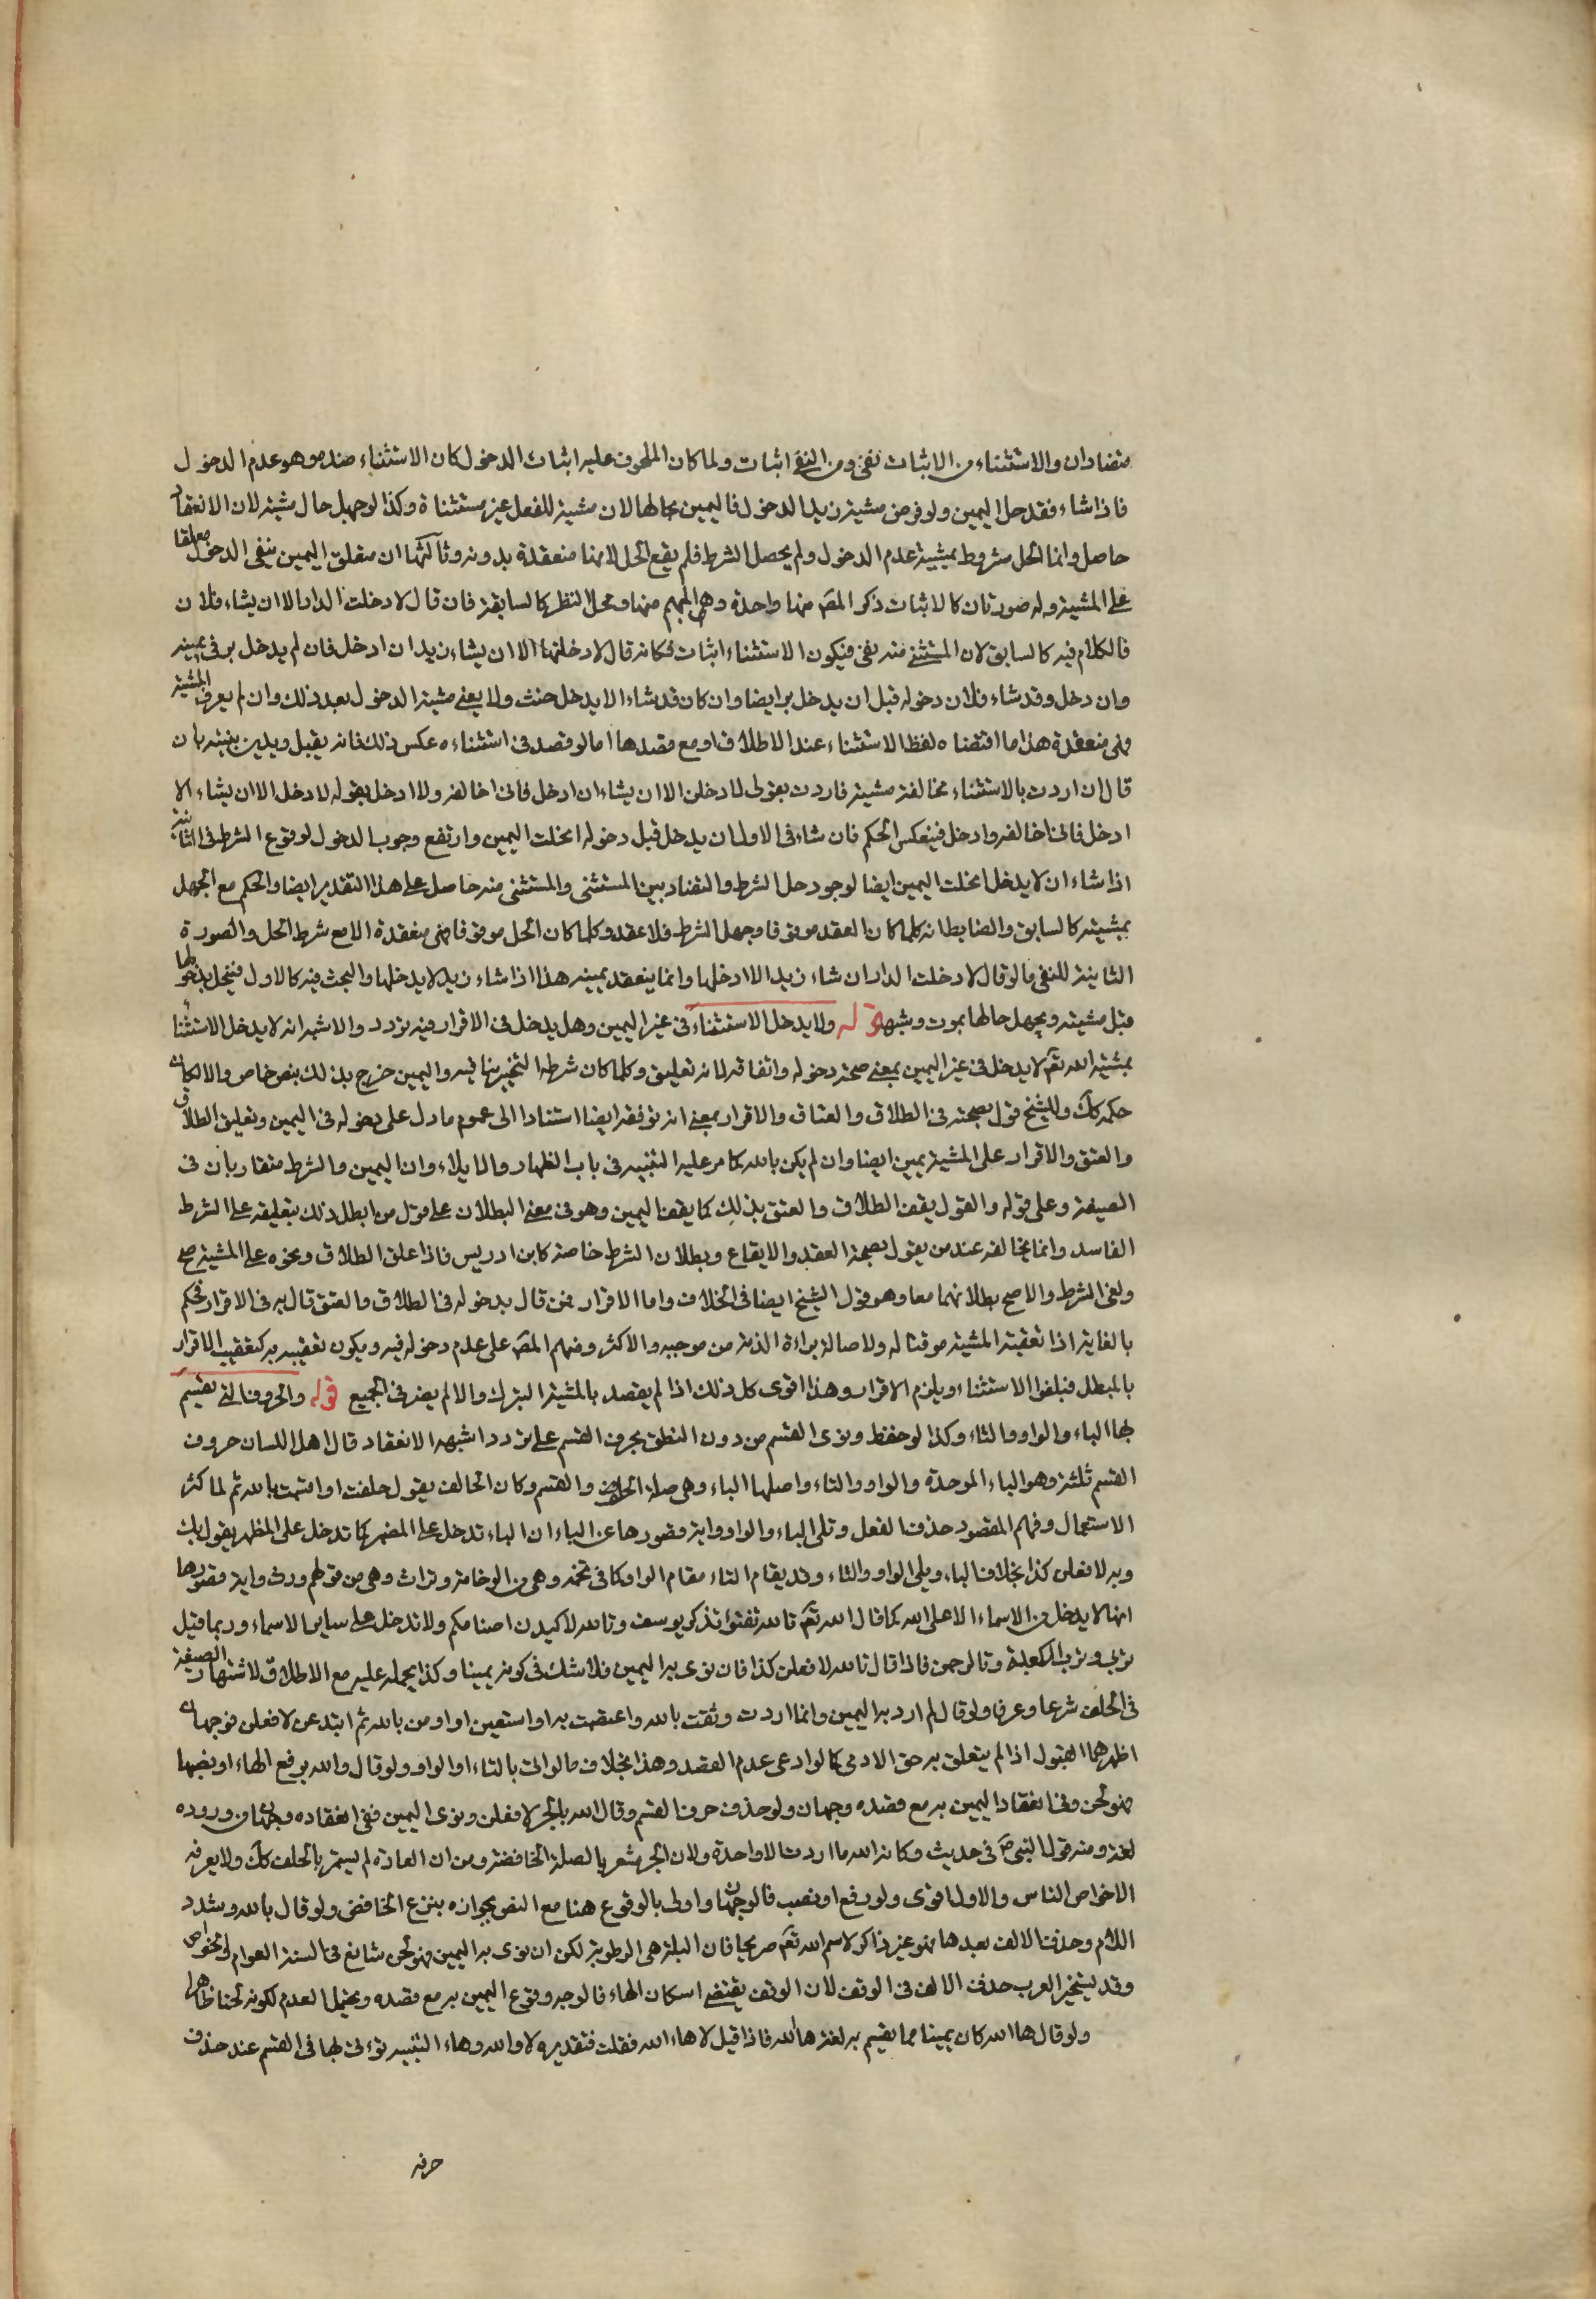 متضادان والاستثناء من الاثبات نفى ومن النفى اثبات ولما كان المحلوف عليه اثبات الدخول كان الاستثناء ضده وهو عدم الدخول
فاذا شاء فقد حل اليمين ولو فرض مشية زيد الدخول فاليمين بحالها لان مشية للفعل غير مستثناة وكذا لو جهل حال مشيته لان الانعقاد
حاصل وانما الحل مشروط بمشية عدم الدخول ولم يحصل الشرط فلم يقع الحل لانها منعقدة بدونه وثالثها ان معلق اليمين بنفى الدخول معلقا
على المشية وله صورتان كالاثبات ذكر المص منها واحدة وهى المبهم منها ومحل النظر كالسابقة فان قال لا دخلت الدار الا ان يشاء فلان
فالكلام فيه كالسابق لان المستثنى منه نفى فيكون الاستثناء اثبات فكانه قال لا دخلتها الا ان يشاء زيد ان ادخل فان لم يدخل بر فى يمينه
وان دخل وقد شاء فلان دخوله قبل ان يدخل بر ايضا وان كان قد شاء الا يدخل حنث ولا يغنى مشية الدخول بعد ذلك وان لم يعرف المشية
فهى منعقدة هذا ما اقتضاه لفظ الاستثناء عند الاطلاق او مع قصدها اما لو قصد فى استثناءه عكس ذلك فانه يقبل ويدين بنيته بان
قال ان اردت بالاستثناء مخالفة مشية فاردت بقولى لادخلن الا ان يشاء ان ادخل فانى اخالفه ولا ادخل بقوله لا دخل الا ان يشاء الا
ادخل فانى اخالفه وادخل فينعكس الحكم فان شاء فى الاول ان يدخل قبل دخوله انحلت اليمين وارتفع وجوب الدخول لوقوع الشرط فى الثانية
اذا شاء ان لا يدخل انحلت اليمين ايضا لوجود حل الشرط والتضاد بين المستثنى والمستثنى منه حاصل على هذا التقدير ايضا والحكم مع الجهل
بمشيته كالسابق والضابط انه كلما كان العقد موقوفا وجهل الشرط فلا عقد وكلما كان الحل موقوفا فهى منعقدة الا مع شرط الحل والصورة
الثانية للنفى ما لو قال لا دخلت الدار ان شاء زيد الا ادخلها وانما ينعقد يمينه هذا اذا شاء زيد لا يدخلها والبحث فيه كالاول فينحل بدخولها
قبل مشيته ويجهل حالها بموت وشبهه قوله ولا يدخل الاستثناء فى غير اليمين وهل يدخل فى الاقرار فيه تردد والاشبه انه لا يدخل الاستثناء
بمشية الله تع لا يدخل فى غير اليمين بمعنى صحة دخوله واتفاقه لانه تعليق وكلما كان شرطه التنجيز ينافيه واليمين خرج بذلك بنص خاص والا لكان
حكمه كك وللشيخ قول بصحته فى الطلاق والعتاق والاقرار بمعنى انه توقفه ايضا استنادا الى عموم ما دل على دخوله فى اليمين وتعليق الطلاق
والعتق والاقرار على المشية يمين ايضا وان لم يكن بالله كما مر عليه التنبيه فى باب الظهار والايلاء وان اليمين والشرط متقاربان فى
الصيغة وعلى قوله والقول يقف الطلاق والعتق بذلك كما يقف اليمين وهو فى معنى البطلان على قول من ابطل ذلك بتعليقه على الشرط
الفاسد وانما يخالفه عند من يقول بصحة العقد والايقاع وبطلان الشرط خاصة كابن ادريس فاذا علق الطلاق ونحوه على المشية صح
ولغى الشرط والاصح بطلانهما معا وهو قول الشيخ ايضا فى الخلاف واما الاقرار فمن قال بدخوله فى الطلاق والعتق قال به فى الاقرار فحكم
بالغاية اذا تعقبته المشية موقتا له ولاصالة براءة الذمة من موجبه والاكثر ومنهم المص على عدم دخوله فيه ويكون تعقيبه به كتعقيب الاقرار
بالمبطل فيلغوا الاستثناء ويلزم الاقرار وهذا اقوى كل ذلك اذا لم يقصد بالمشية التبرك والا لم يضر فى الجميع قوله والحروف التى يقسم
بها الباء والواو والتاء وكذا لو خفظ ونوى القسم من دون النطق بحرف القسم على تردد اشبهه الانعقاد قال اهل اللسان حروف
القسم ثلثة وهو الباء الموحدة والواو والتاء واصلها الباء وهى صلة الحلف والقسم وكان الحالف يقول حلفت او اقسمت بالله ثم لما كثر
الاستعمال وفهم المقصود حذف الفعل وتلى الباء والواو واية قصورها عن الباء ان الباء تدخل على المضمر كما تدخل على المظهر يقول بك
وبه لافعلن كذا بخلاف الباء ويلى الواو والتاء وقد يقام التاء مقام الواو كما فى تخمة وهى من الوخامة وتراث وهى من قولهم ورث واية قصورها
انها لا يدخل من الاسماء الا على الله كما قال الله تع تالله تفتؤ تذكر يوسف وتالله لاكيدن اصنامكم ولا تدخل على ساير الاسماء وربما قيل
تربى وترب الكعبة وتالرحمن فاذا قال تالله لافعلن كذا فان نوى به اليمين فلا شك فى كونه يمينا وكذا يحمله عليه مع الاطلاق لاشتهار الصيغة
فى الحلف شرعا وعرفا ولو قال لم ارد به اليمين وانما اردت وثقت بالله واعتصمت به او استعين او اومن بالله ثم ابتدءت لافعلن فوجهان
اظهرهما القبول اذا لم يتعلق به حق الادمى كما لو ادعى عدم القصد وهذا بخلاف ما لو اتى بالتاء او الواو ولو قال والله برفع الهاء او بنصبها
فهو لحن وفى انعقاد اليمين به مع قصده وجهان ولو حذف حرف القسم وقال الله بالجر لافعلن ونوى اليمين ففى انعقاده وجهان من وروده
لغة ومنه قول النبى ص فى حديث وكانه الله ما اردت الا واحدة ولان الجر مشعر بالصلة الخافضة ومن ان العادة لم يستمر بالحلف كك ولا يعرفه
الا خواص الناس والاول اقوى ولو رفع او نصب فالوجهان واولى بالوقوع هنا مع النصب بجوازه بنزع الخافض ولو قال بالله وشدد
اللام وحذف الالف بعدها فهو غير ذاكر لاسم الله تع صريحا فان البلة هى الرطوبة لكن ان نوى به اليمين فهو لحن شائع فى السنة العوام والخواص
وقد يستجيز العرب حذف الالف فى الوقف لان الوقف يقتضى اسكان الهاء فالوجه وقوع اليمين به مع قصده ويحتمل العدم لكونه لحنا ظاهرا
ولو قال ها الله كان يمينا مما يقسم به لغة ها الله فاذا قيل لا هاء الله فقلت فتقديره لا والله وهاء التنبيه تؤتى بها فى القسم عند حذف
حرفه